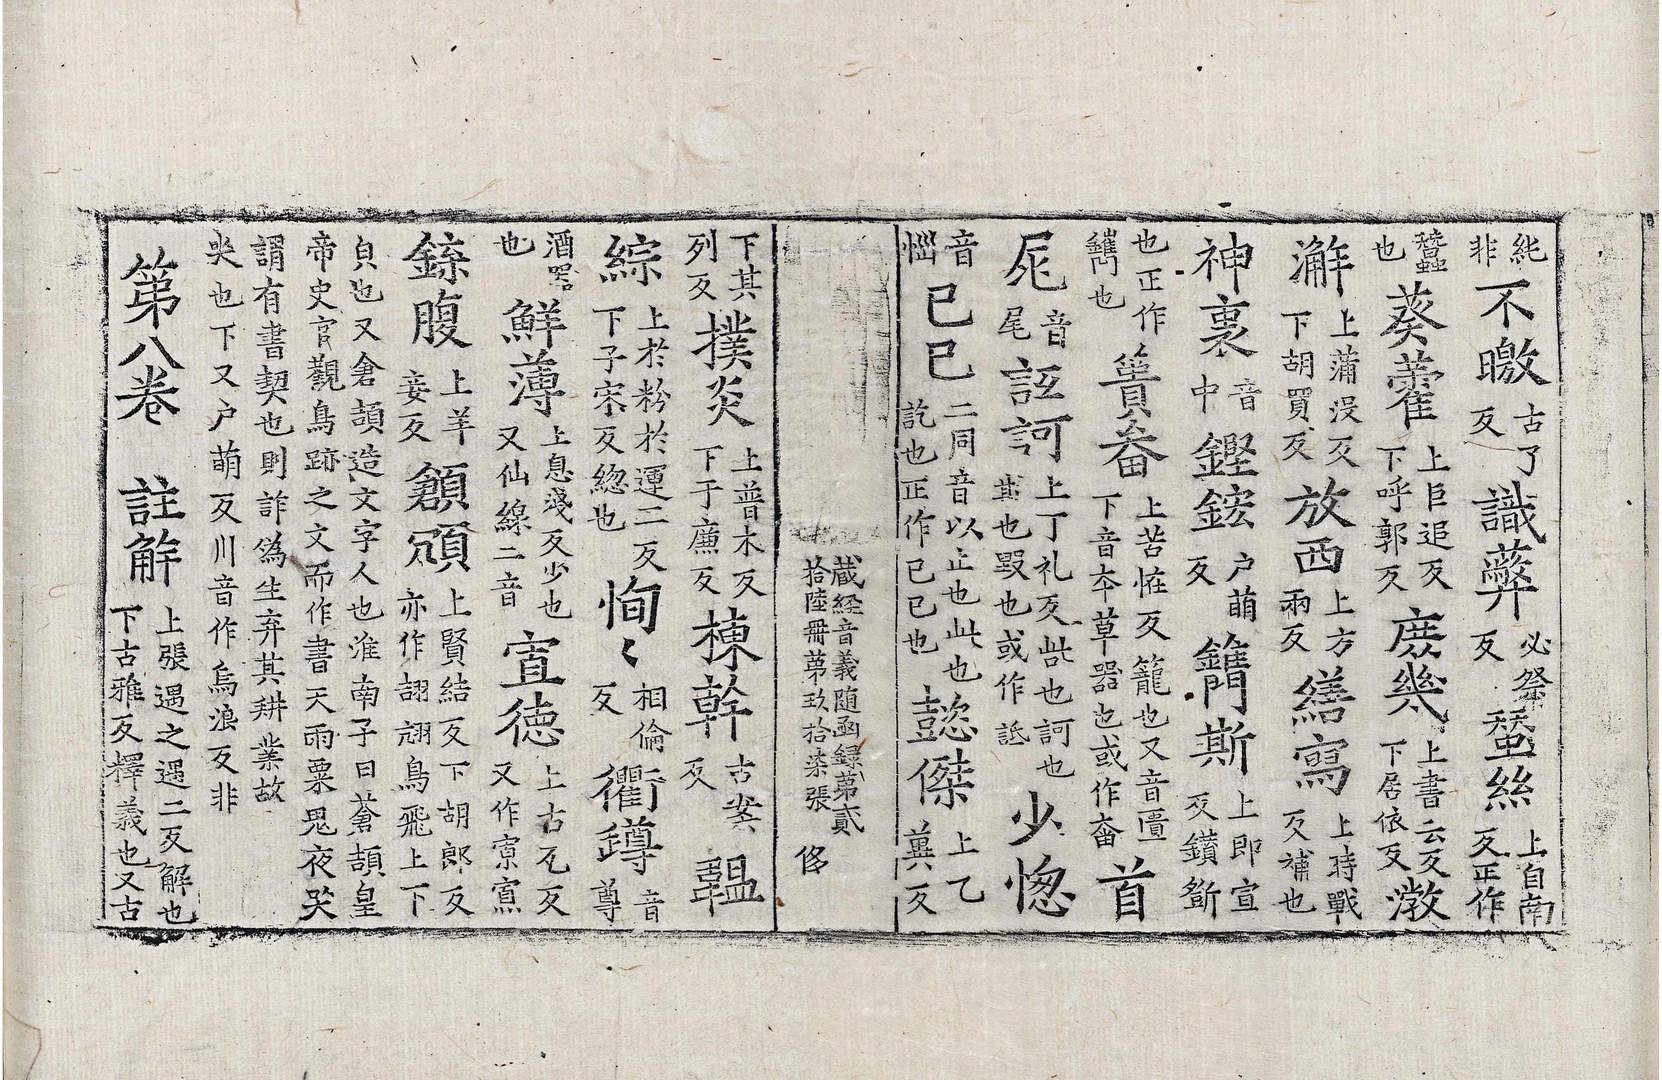 紕非不曒古了反識弊必祭反蝅絲上自南反正作
蠶也葵藿上巨追反下呼郭反庻幾上書云反下居依反潡
澥上蒲没反下胡買反放西上方兩反繕寫上時戰反補也
神裏音中鏗鋐户萌反鐫斯上即宣反鑚斵
也正作鑴也簣畚上苦恠反籠也又音匱下音夲草器也或作畚首
㞑音尾詆訶上丁礼反呰也訶也毀也或作詆少惚
音惱已已二同音以止也此也訖也正作已已也懿傑上乙冀反
蔵経音義随函録第貳
拾陸冊第玖拾柒張
下其列反撲炎上普木反下于廉反棟幹古案反韞
綜上於粉於運二反下子宋反緫也恂〻相倫反衢罇音尊
酒器也鮮薄上息淺反少也又仙線二音㝔德上古瓦反又作寡
鎵腹上羊妾反顩頏上賢結反下胡郎反亦作翓翃鳥飛上下
㒵也又倉頡造文字人也淮南子曰蒼頡皇
帝史官觀鳥跡之文而作書天雨粟鬼夜哭
謂有書契也則詐僞生弃其耕業故
哭也下又户萌反川音作烏浪反非
第八卷 註解上張遇之遇二反解也下古雅反釋義也又古